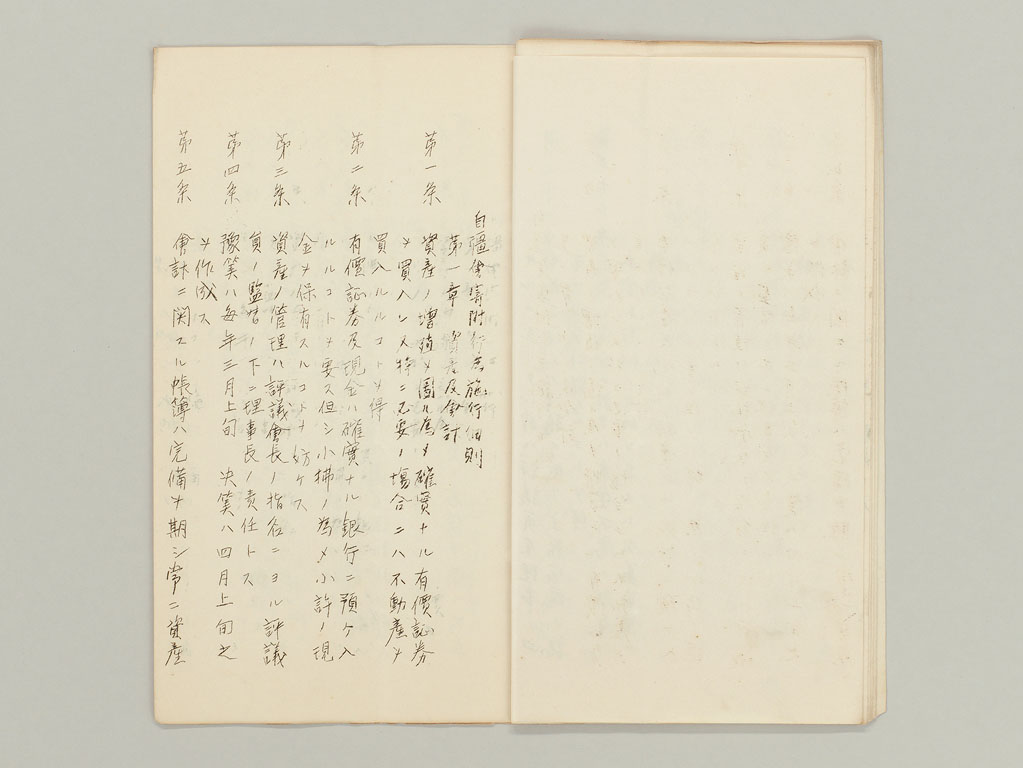 自彊會寄附行為施行細則
第一章 資産及會計
第一条 資産ノ増殖ヲ圖ル為メ確實ナル有價証券
ヲ買入レ又特ニ必要ノ場合ニハ不動産ヲ
買入ルルコトヲ得
第二条 有價証券及現金ハ確實ナル銀行ニ預ケ入
ルルコトヲ要ス但シ小拂ノ為メ小許ノ現
金ヲ保有スルコトヲ妨ケス
第三条 資産ノ管理ハ評議會長ノ指名ニヨル評議
員ノ監督ノ下ニ理事長ノ責任トス
第四条 豫算ハ毎年三月上旬 決算ハ四月上旬之
ヲ作成ス
第五条 會計ニ関スル帳簿ハ完備ヲ期シ常ニ資産